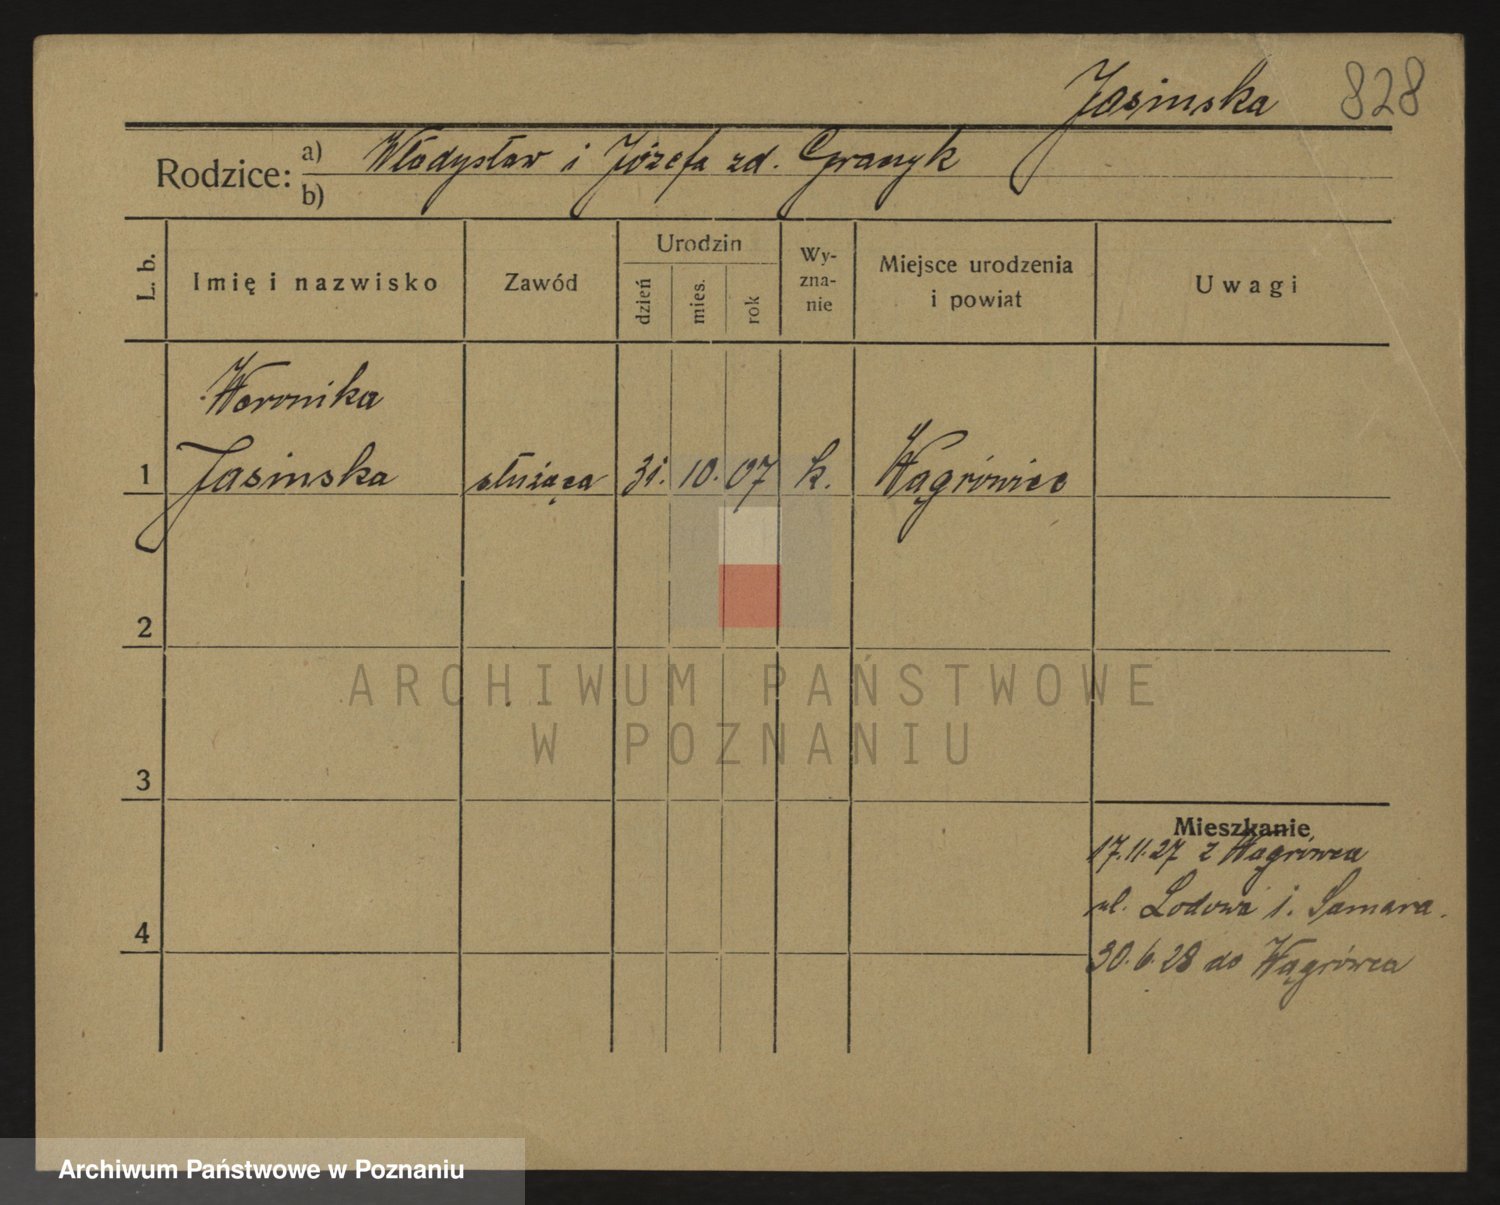 Jasinska 828
Rodzice: a) Władysław i Józefa zd.
b)
L. b. Imię i nazwisko Zawód Urodzin dzień mies. rok Wy-zna-nie Miejsce urodzenia i powiat Uwagi
Weronika
1 Jasinska służąca 31. 10. 07 k. Wągrówiec
2
ARCHIWUM PAŃSTWOWE
W POZNANIU
3
Mieszkanie
17.11.27 z Wągrówca
ul. Lodowa i. Samara.
4
30.6.28 do Wągrówca
Archiwum Państwowe w Poznaniu